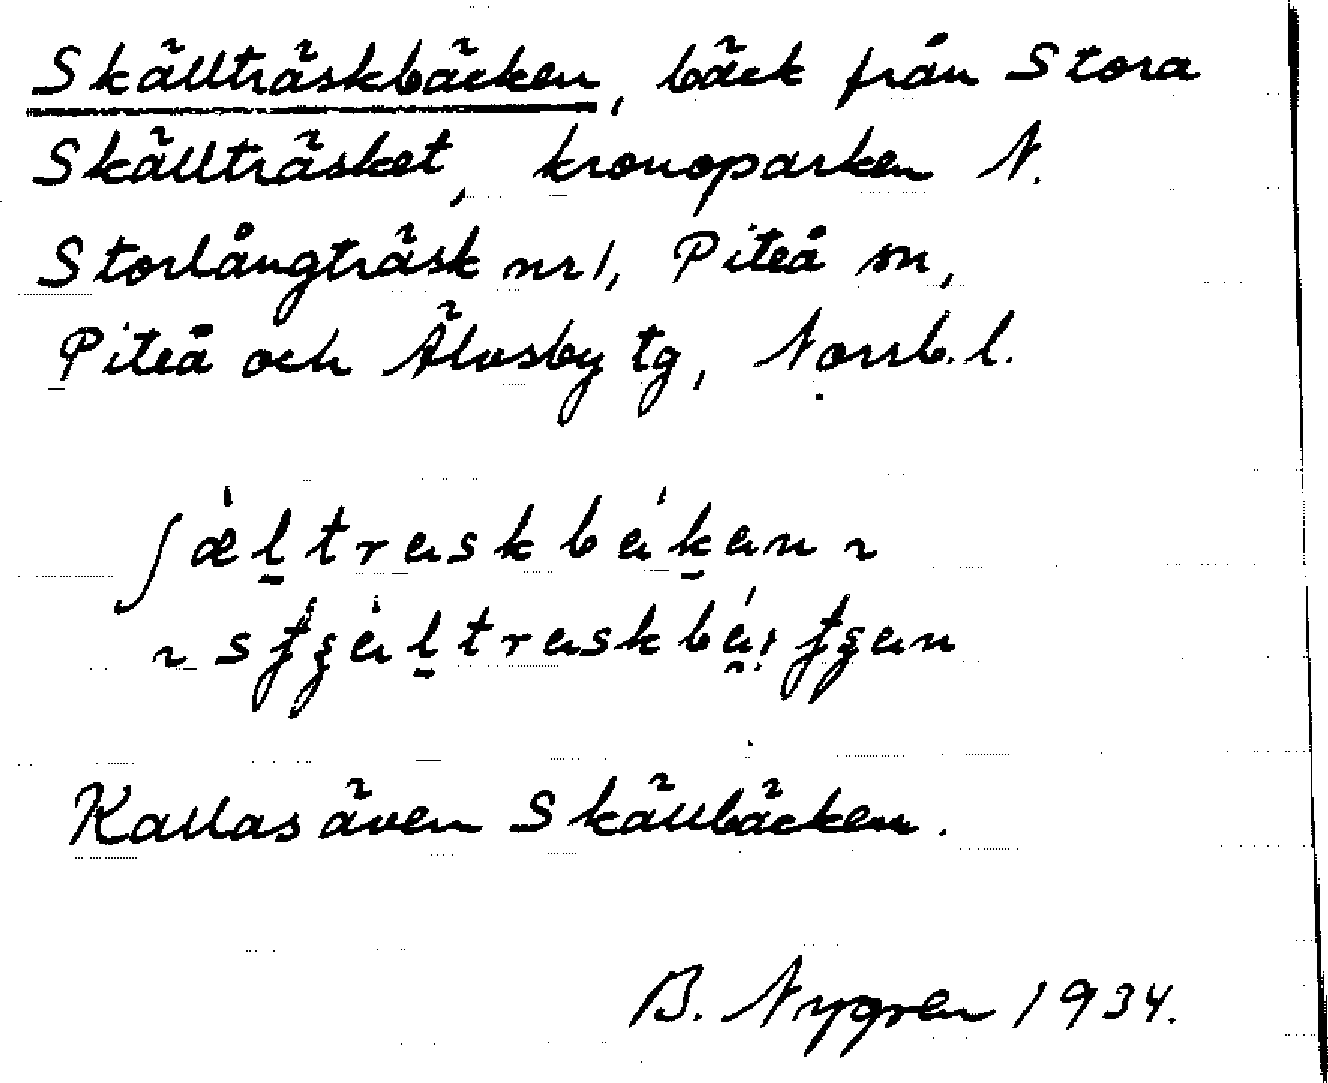 Skällträskbäcken, bäck från Stora
Skällträsket, kronoparken N.
Storlångträsk nr 1, Piteå sn,
Piteå och Älvsby tg, Norrb. l.
Kallas även Skällbäcken.
B. Nygren 1934.